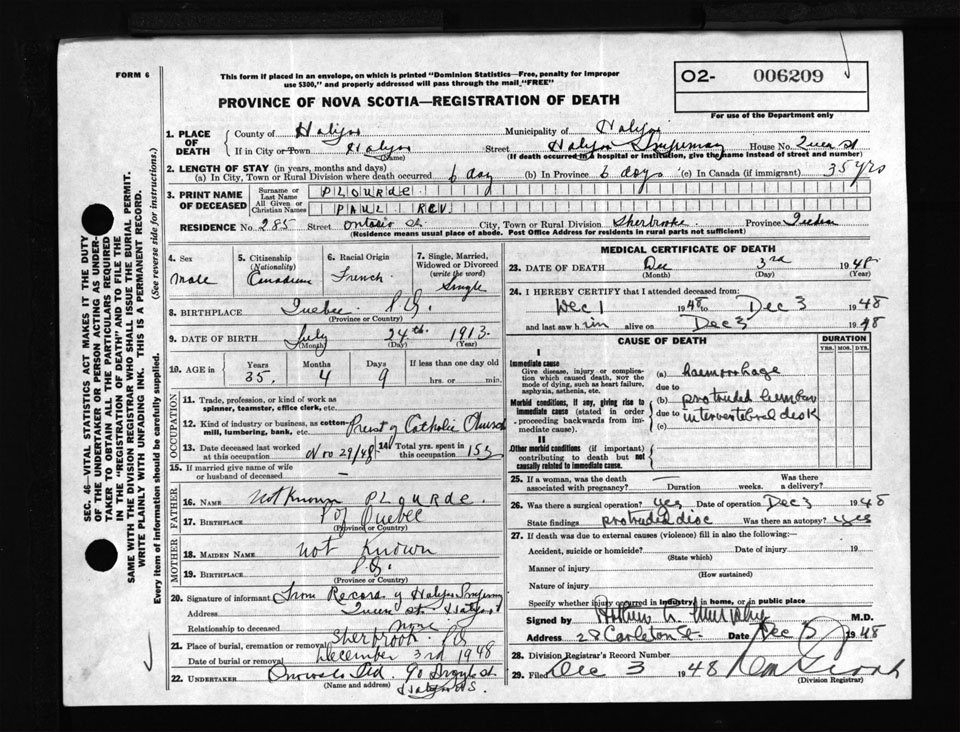 FORM 6
This form if placed in an envelope, on which is printed "Dominion Statistics—Free, penalty for improper
use $300," and properly addressed will pass through the mail "FREE"
O2- 006209
For use of the Department only
PROVINCE OF NOVA SCOTIA—REGISTRATION OF DEATH
SEC. 46 VITAL STATISTICS ACT MAKES IT THE DUTY
OF THE UNDERTAKER OR PERSON ACTING AS UNDER-
TAKER TO OBTAIN ALL THE PARTICULARS REQUIRED
IN THE "REGISTRATION OF DEATH" AND TO FILE THE
SAME WITH THE DIVISION REGISTRAR WHO SHALL ISSUE THE BURIAL PERMIT.
WRITE PLAINLY WITH UNFADING INK. THIS IS A PERMANENT RECORD.
Every item of information should be carefully supplied. (See reverse side for instructions.)
1. PLACE OF DEATH
County of Halifax Municipality of Halifax
If in City or Town Halifax Street Halifax Infirmary House No. Queen St
(Name) (If death occurred in a hospital or institution, give the name instead of street and number)
2. LENGTH OF STAY (in years, months and days)
(a) In City, Town or Rural Division where death occurred 6 day (b) In Province 6 days (c) In Canada (if immigrant) 35 yrs
3. PRINT NAME OF DECEASED
Surname or Last Name PLOURDE
All Given or Christian Names PAUL REV
RESIDENCE No. 285 Street Ontario St. City, Town or Rural Division Sherbrooke Province Quebec
(Residence means usual place of abode. Post Office Address for residents in rural parts not sufficient)
4. Sex Male
5. Citizenship (Nationality) Canadian
6. Racial Origin French
7. Single, Married, Widowed or Divorced (write the word) Single
8. BIRTHPLACE Quebec P.Q.
(Province or Country)
9. DATE OF BIRTH July 24th 1913.
(Month) (Day) (Year)
10. AGE in Years 35 Months 4 Days 9 If less than one day old hrs. or min.
OCCUPATION
11. Trade, profession, or kind of work as spinner, teamster, office clerk, etc.
12. Kind of industry or business, as cotton-mill, lumbering, bank, etc. Priest of Catholic Church
13. Date deceased last worked at this occupation Nov 29/48 14. Total yrs. spent in this occupation
15. If married give name of wife or husband of deceased —
FATHER
16. NAME Not Known PLOURDE.
17. BIRTHPLACE P of Quebec
(Province or Country)
MOTHER
18. MAIDEN NAME not Known
19. BIRTHPLACE P.Q.
(Province or Country)
20. Signature of informant From Record of Halifax Infirmary
Address Queen St. Halifax
Relationship to deceased none
21. Place of burial, cremation or removal Sherbrook PQ
Date of burial or removal December 3rd 1948
22. UNDERTAKER Ltd 90 Argyle St.
(Name and address) Halifax N.S.
MEDICAL CERTIFICATE OF DEATH
23. DATE OF DEATH Dec 3rd 1948
(Month) (Day) (Year)
24. I HEREBY CERTIFY that I attended deceased from:
Dec 1 1948 to Dec 3 1948
and last saw him alive on Dec 3 1948
CAUSE OF DEATH
DURATION
YRS. MOS. DYS.
I
Immediate cause
Give disease, injury or complication which caused death, NOT the mode of dying, such as heart failure, asphyxia, asthenia, etc.
(a) haemorrhage
due to
Morbid conditions, if any, giving rise to immediate cause (stated in order proceeding backwards from immediate cause).
(b) protruded lumbar
due to intervertebral disk
(c)
II
Other morbid conditions (if important) contributing to death but not causally related to immediate cause.
25. If a woman, was the death associated with pregnancy? — Duration weeks. Was there a delivery?
26. Was there a surgical operation? yes Date of operation Dec 3 1948
State findings protruded disc Was there an autopsy? yes
27. If death was due to external causes (violence) fill in also the following:—
Accident, suicide or homicide? Date of injury 19
(State which)
Manner of injury
(How sustained)
Nature of injury
Specify whether injury occurred in industry, in home, or in public place
Signed by Arthur L. Murphy M.D.
Address 28 Carleton St. Date Dec 3 1948
28. Division Registrar's Record Number
29. Filed Dec 3 1948
(Division Registrar)